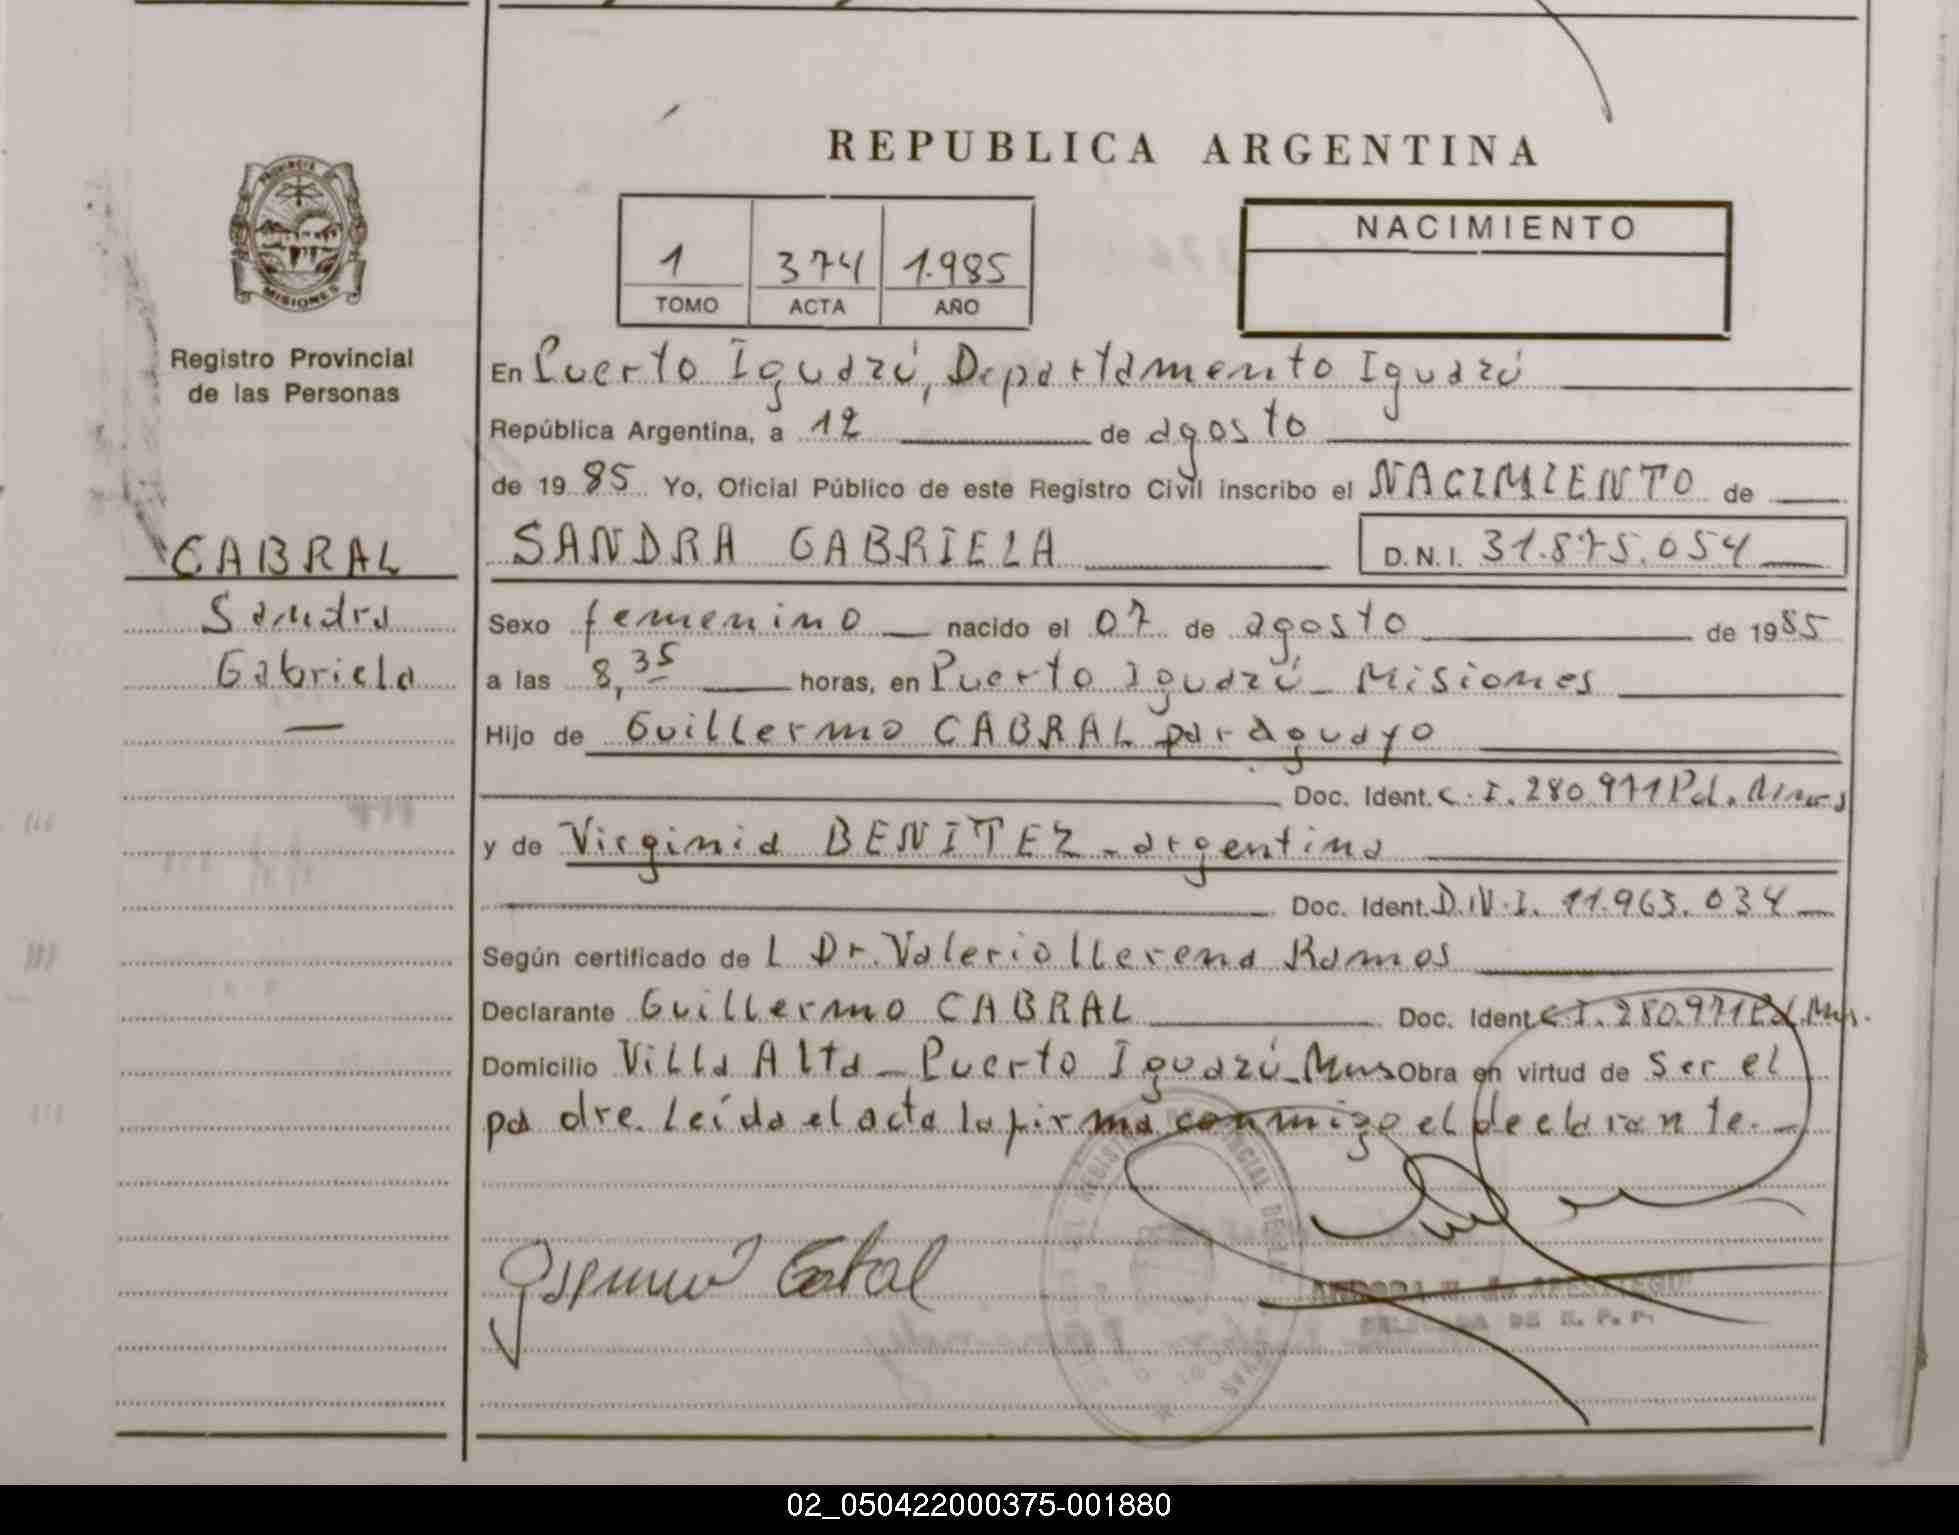 REPUBLICA ARGENTINA
PROVINCIA DE
MISIONES
Registro Provincial
de las Personas
CABRAL
Sandra
Gabriela
1 374 1.985
TOMO ACTA AÑO
NACIMIENTO
En Puerto Iguazú, Departamento Iguazú
República Argentina, a 12 de agosto
de 19 85 Yo, Oficial Público de este Registro Civil inscribo el NACIMIENTO de
SANDRA GABRIELA D.N.I. 31.875.054
Sexo femenino nacido el 07 de agosto de 1985
a las 8,35 horas, en Puerto Iguazú - Misiones
Hijo de Guillermo CABRAL paraguayo
Doc. Ident. C.I. 280.971 Pol. Mnes
y de Virginia BENITEZ - argentina
Doc. Ident. D.N.I. 11.963.034
Según certificado de L Dr. Valerio Llerena Ramos
Declarante Guillermo CABRAL Doc. Ident C.I. 280.971 Pol. Mns.
Domicilio Villa Alta - Puerto Iguazú - Mns Obra en virtud de ser el
padre. Leída el acta la firma conmigo el declarante.
Cabral
DELEGADA DE R. P. P.
02_050422000375-001880